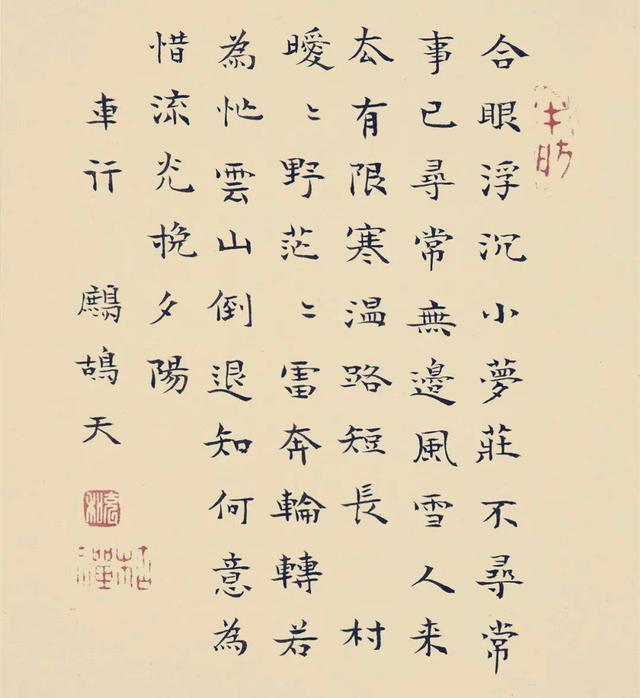 合眼浮沉小夢莊不尋常
事已尋常無邊風雪人来
厺有限寒温路短長 村
曖〻野茫〻雷奔輪轉若
為忙雲山倒退知何意為
惜流光挽夕陽
車行 鷓鴣天